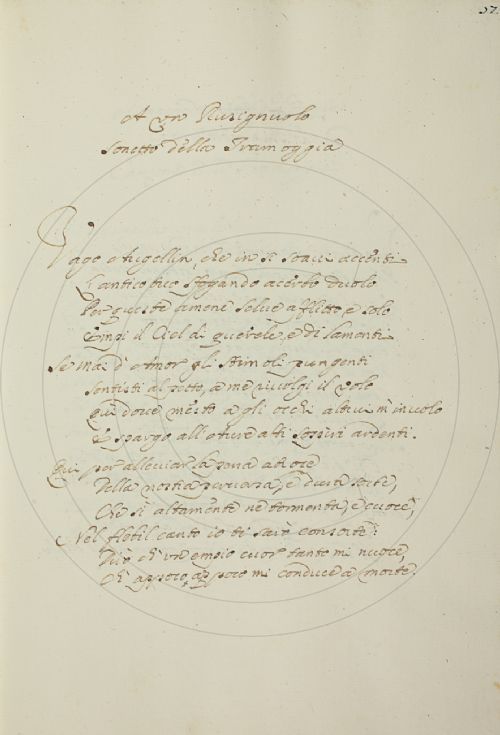 37.
A un Rusignuolo
Sonetto della Tramoggia
Vago Augellin, che in sì soavi accenti
L'antico tuo sfogando acerbo duolo
Per queste amene selve afflitto, e solo
Empi il Ciel di querele, e di lamenti
Se mai d'Amor gli stimoli pungenti
Sentisti al petto, a me rivolgi il volo
Qui dove mesto a gli occhi altrui m'involo
E spargo all'Aure alti sospiri ardenti.
Qui per alleviar la pena atroce
Della nostra perversa, e dura sorte,
Che sì altamente ne tormenta, e cuoce,
Nel flebil canto io ti sarò consorte:
Dirò ch'un empio cuor tanto mi nuoce,
Ch'appoco, appoco mi conduce a morte.